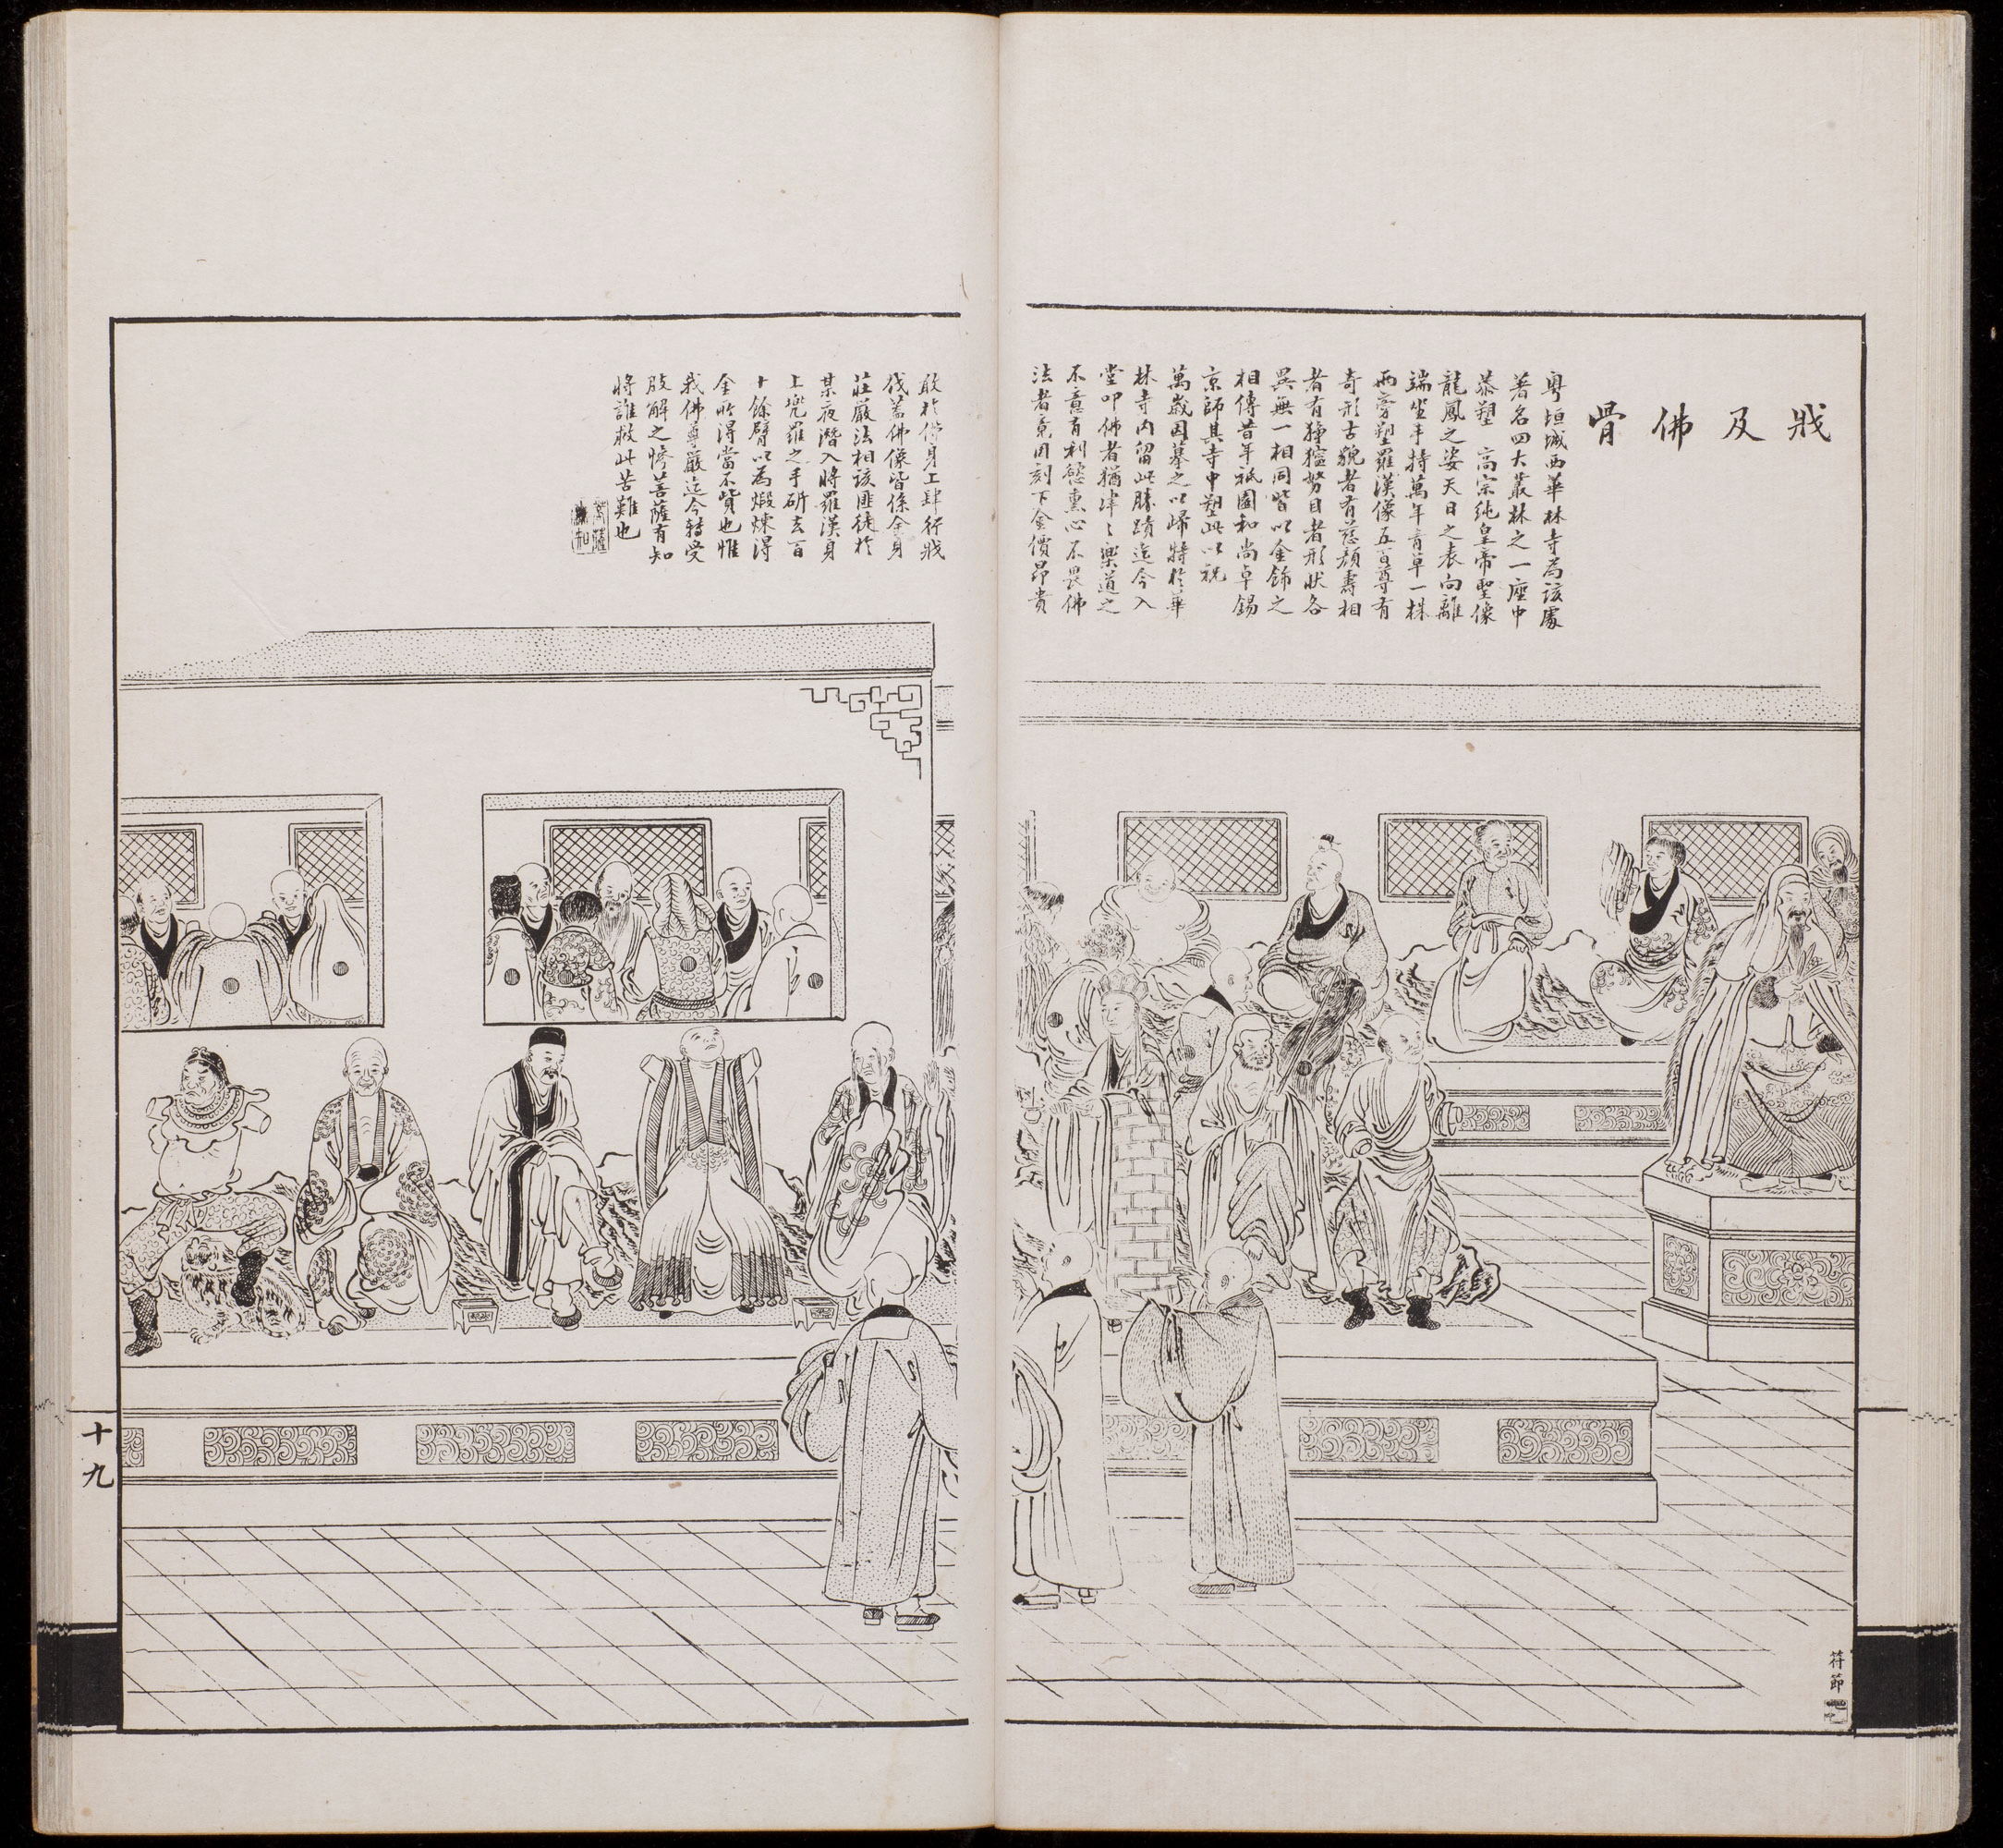 戕及佛骨
粵垣城西華林寺為該處
著名四大叢林之一座中
恭塑 高宗純皇帝聖像
龍鳳之姿天日之表向離
端坐手持萬年青草一株
兩旁塑羅漢像五百尊有
奇形古貌者有慈顏壽相
者有猙獰努目者形狀各
異無一相同皆以金飾之
相傳昔年祇園和尚卓錫
京師其寺中塑此以祝
萬歲因摹之以歸特於華
林寺內留此勝蹟迄今入
堂叩佛者猶津々樂道之
不意有利慾熏心不畏佛
法者竟因刻下金價昂貴
敢於佛身上肆行戕
伐蓋佛像皆係金身
莊嚴法相該匪徒於
某夜潛入將羅漢身
上兜羅之手斫去百
十餘臂以為煅煉得
金所得當不貲也惟
我佛尊嚴迄今轉受
肢解之慘菩薩有知
將誰救此苦難也
十九
符節